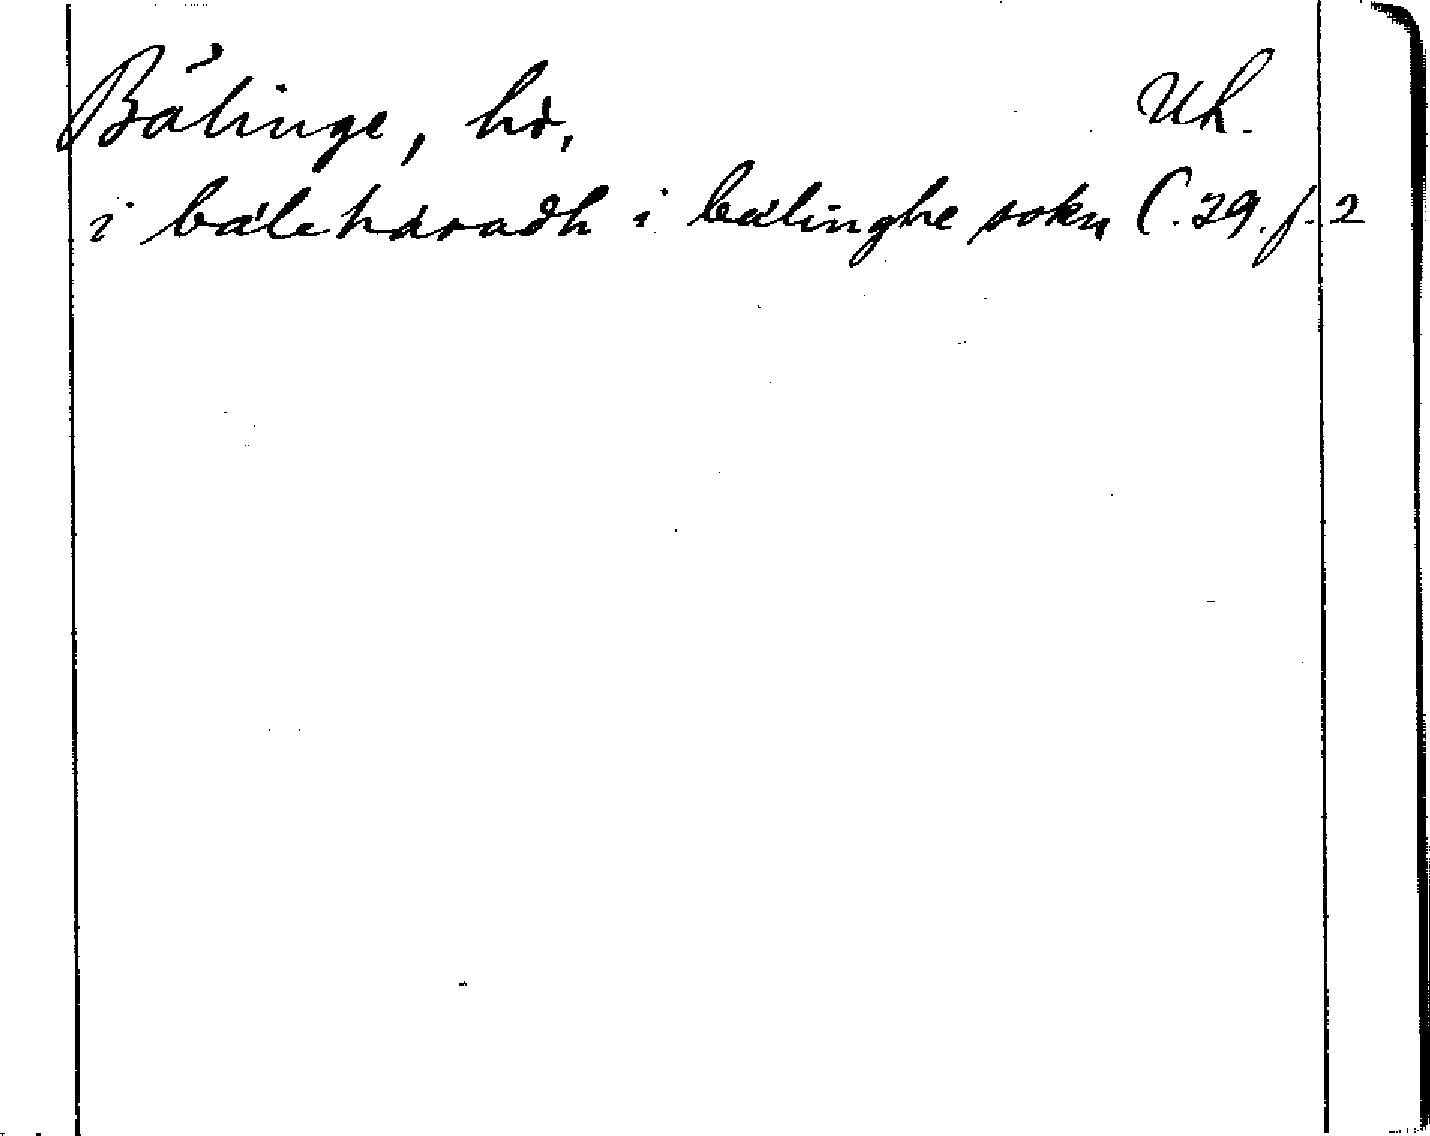 Bälinge, hd, Uh.
i bäle häradh i bälinghe sokn C. 29. f. 2